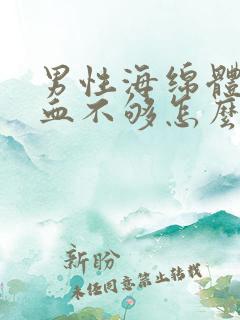 男性海绵體
血不够怎麽
新盼
未经同意禁止转载